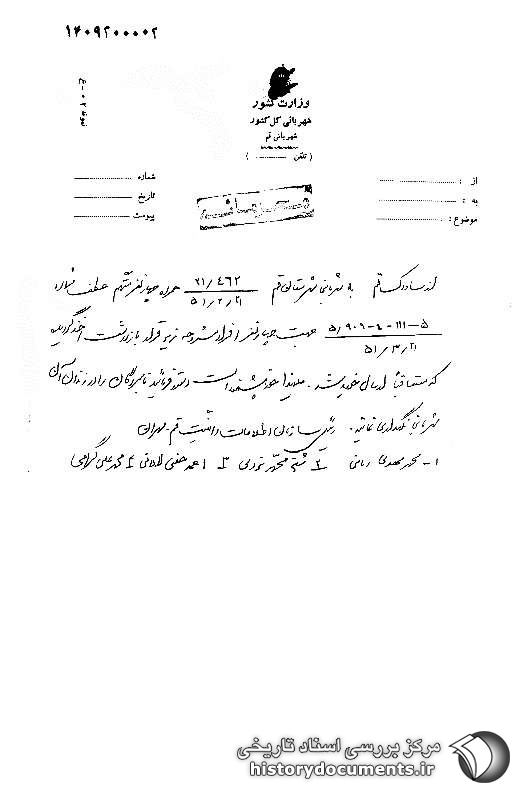 ۱۴۰۹۲۰۰۰۰۲
نمونه ۲ – ۵ – ع
وزارت کشور
شهربانی کل کشور
شهربانی قم
( تلفن )
شماره
تاریخ
پیوست
از :
به :
موضوع :
از ساواک قم به شهربانی شهرستان قم ۲۱/۴۶۲ ۵۱/۲/۲۱ همراه چهار نفر متهم عطف شماره
۵/۹۰۱-۴-۱۱۱-۵ ۵۱/۳/۲۱ جهت چهار نفر افراد مشروحه زیر قرار بازداشت اخذ گردیده
که متعاقباً ارسال خواهد شد. علیهذا خواهشمند است دستور فرمائید نامبردگان را در زندان آن
شهربانی نگهداری نمایند. رئیس سازمان اطلاعات و امنیت قم. مهران
۱- محمد مهدی ربانی ۲ شیخ محمد یزدی ۳ احمد ۴ محمد علی گرامی
مرکز بررسی اسناد تاریخی
historydocuments.ir